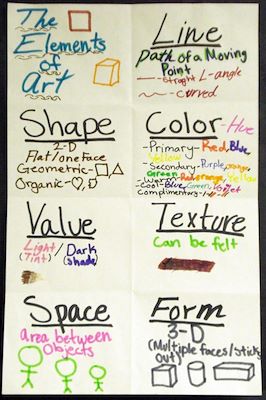 The
Elements
of
Art
Line
Path of a Moving
Point
Straght L-angle
-curved
Shape
2-D
Flat/one Face
Geometric-
Organic-
Color-Hue
-Primary-Red, Blue,
Yellow
-Secondary-Purple, orange,
Green
-Warm-Red, orange, Yellow
-Cool-Blue, Green, Violet
Complimentry-
Value
Light
(Tint)/Dark
(Shade)
Texture
Can be felt
Space
area between
Objects
Form
3-D
(Multiple faces/Sticks
Out)